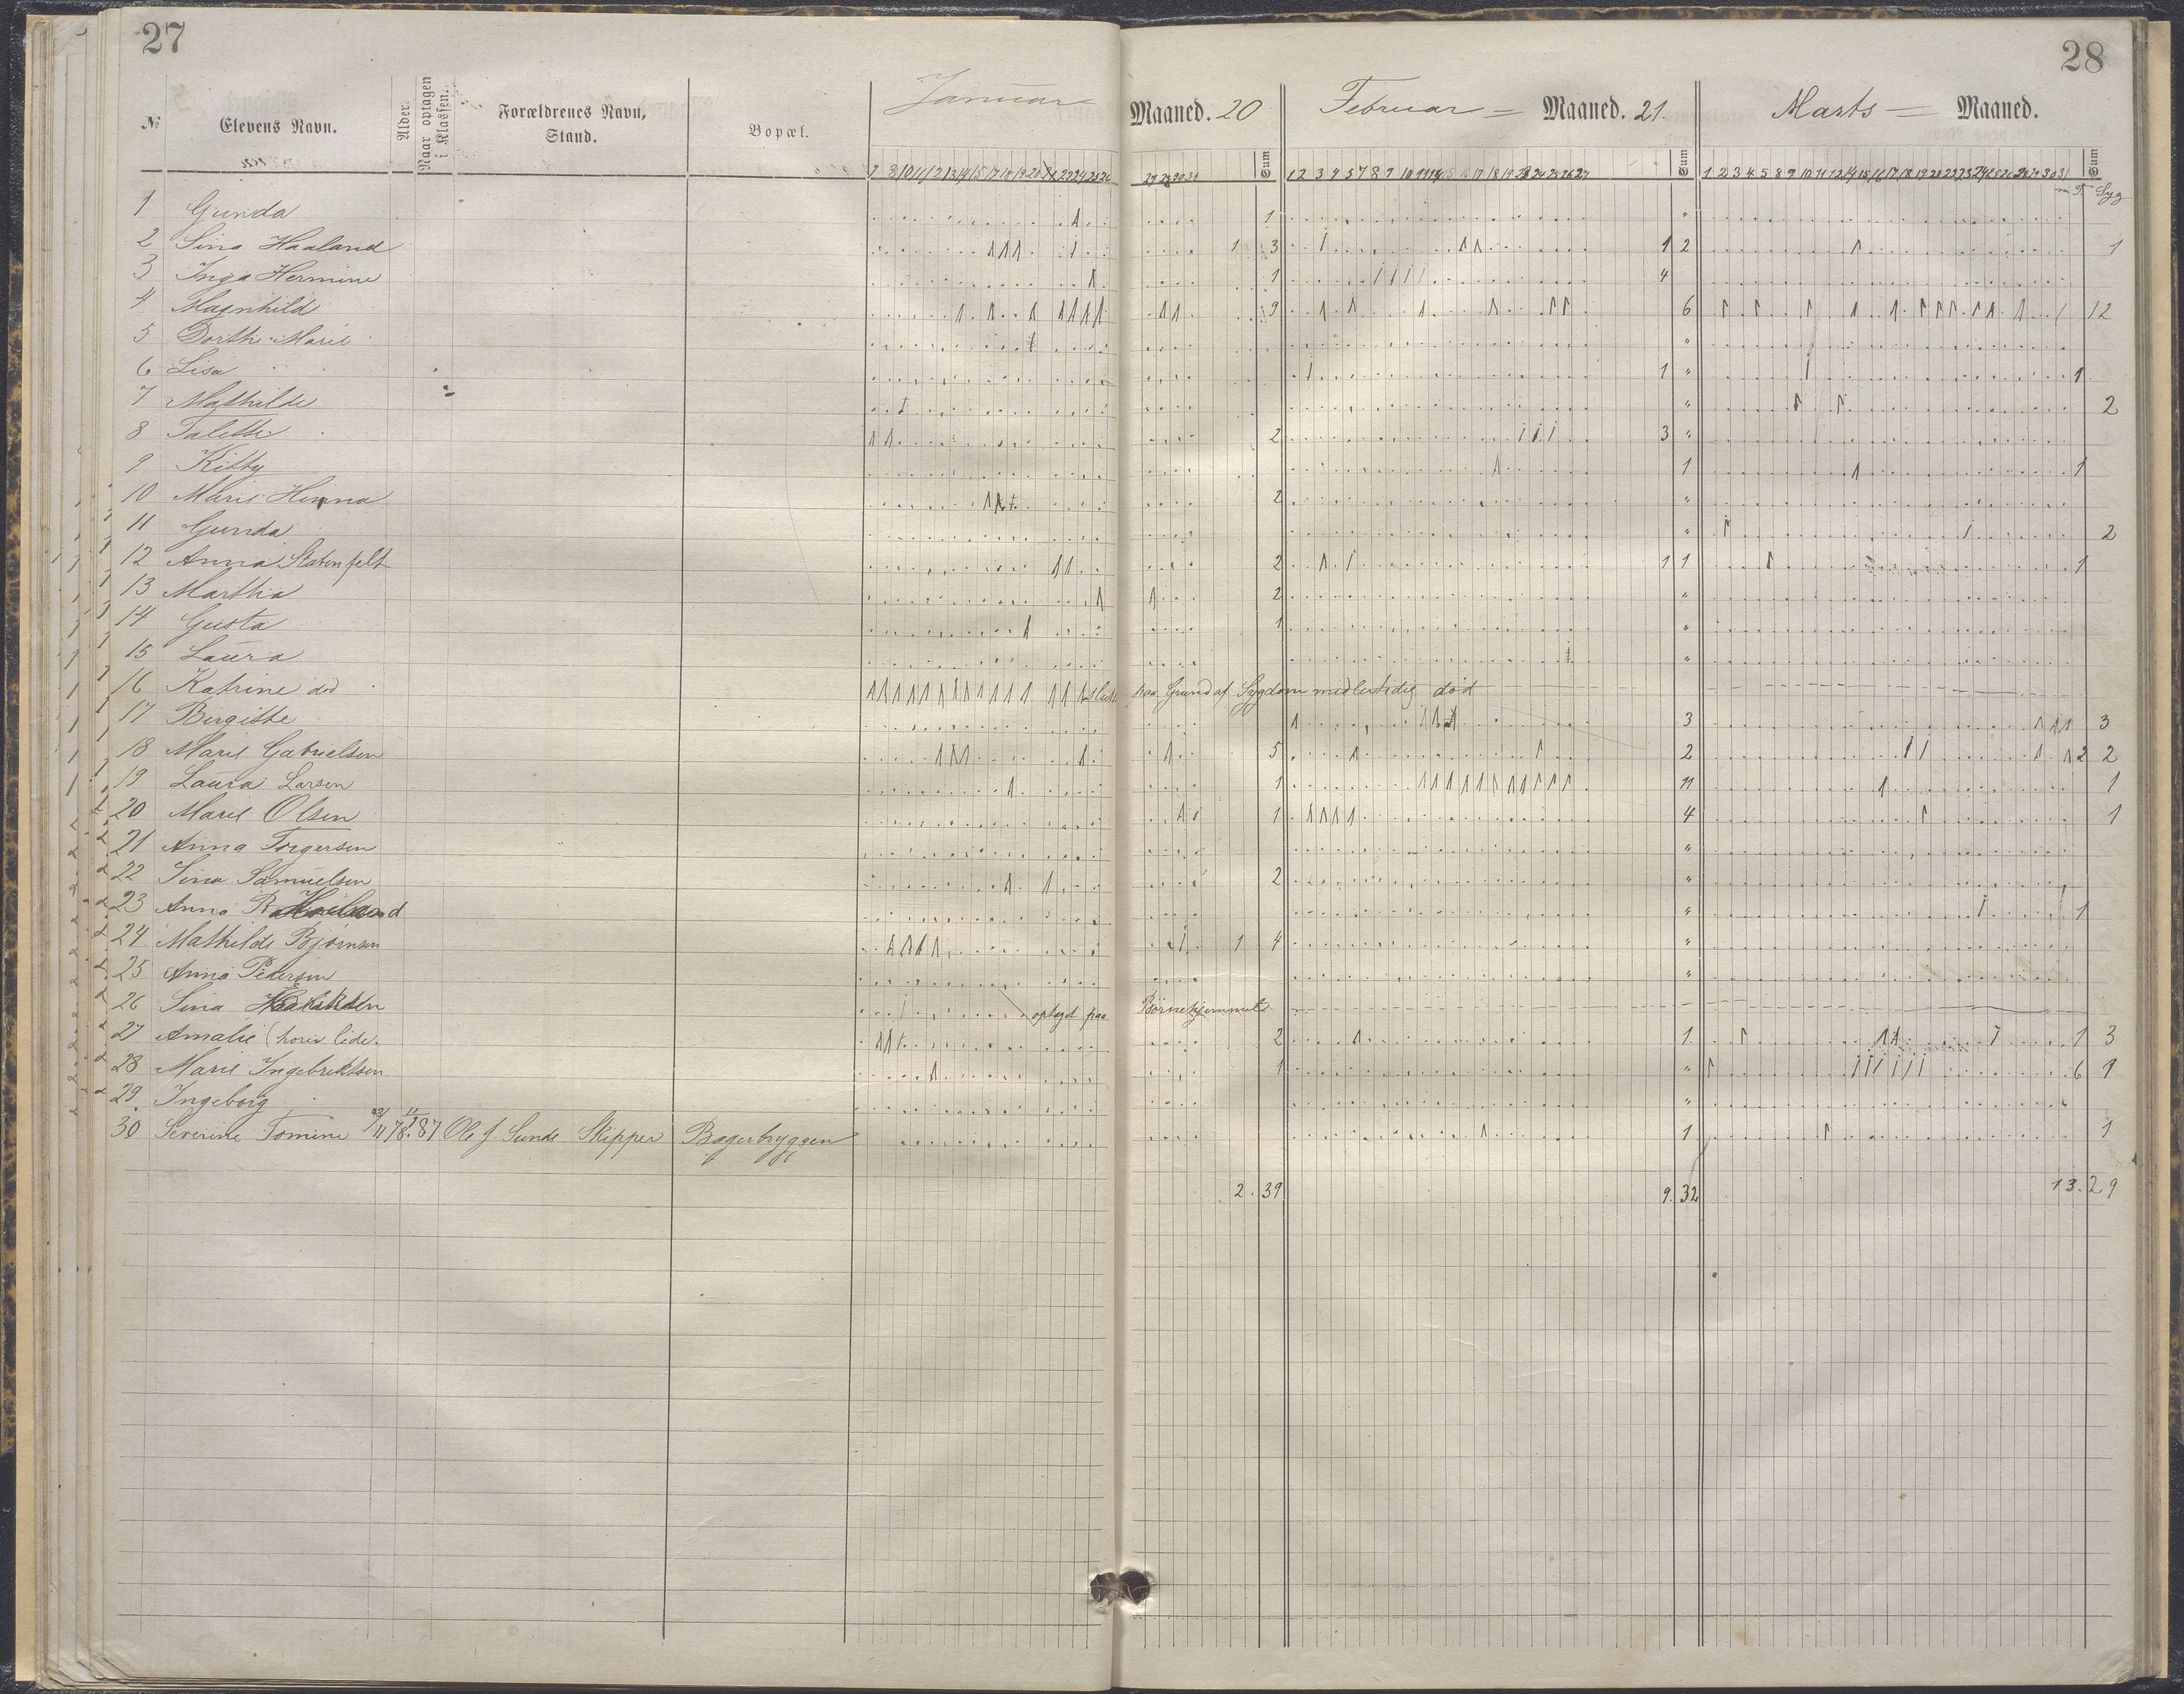 27
28
№ Elevens Navn. Alder. Naar optagen i Klassen. Forældrenes Navn, Stand. Bopæl. Januar Maaned. 20 Sum Februar Maaned. 21. Sum Marts Maaned. Sum
7 8 10 11 12 13 14 15 17 18 19 20 21 22 24 25 26 27 28 29 31
1 2 3 4 5 7 8 9 10 11 12 14 15 16 17 18 19 23 24 25 26 27
1 2 3 4 5 8 9 10 11 12 14 15 16 17 18 19 30 31
m T Syg
1 Gunda 1 "
2 Sina Haaland 1 3 1 2 1
3 Inga Hermine 1 4
4 Magnhild 9 6 12
5 Dorthe Marie "
6 Lisa 1 " 1
7 Mathilde " 2
8 Talette 2 3 "
9 Kitty 1 1
10 Marie Henna 2 "
11 Gunda " 2
12 Anna Statenfelt 2 1 1 1
13 Martha 2 "
14 Gusta 1 "
15 Laura "
16 Katrine død slutt paa Grund af Sygdom midlertidig død
17 Birgitte 3 3
18 Marie Gabrielsen 5 2 2 2
19 Laura Larsen 1 11 1
20 Marie Olsen 1 4 1
21 Anna Torgersen "
22 Sina Samuelsen 2 "
23 Anna " 1
24 Mathilde Bjørnsen 1 4 "
25 Anna Pedersen "
26 Sina optagt paa Børnehjemmet
27 Amalie 2 1 1 3
28 Marie Ingebrektsen 1 " 6 1
29 Ingeborg "
30 Severine Tomine 23/4 78. 11/1 87 Ole J Sunde Skipper Bagerbryggen 1 1
2. 39 9. 32 13. 29